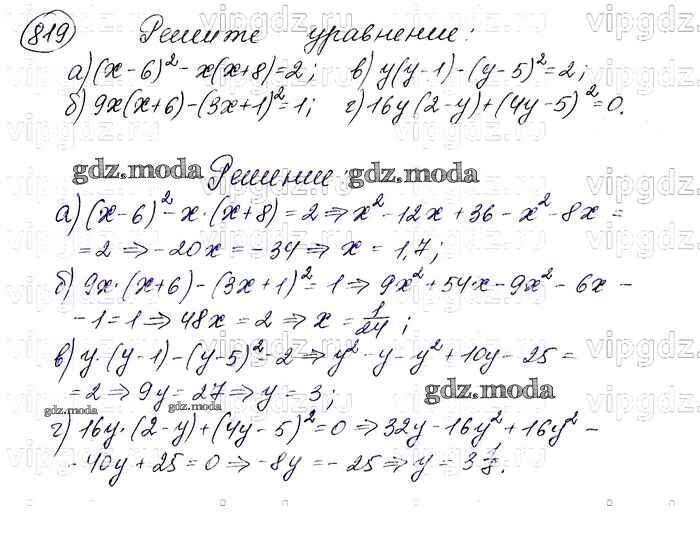 819 Решите уравнение:
а) (x-6)² - x(x+8)=2; в) y(y-1)-(y-5)²=2;
б) 9x(x+6)-(3x+1)²=1; г) 16y(2-y)+(4y-5)²=0.
gdz.moda Решение: gdz.moda
а) (x-6)² - x·(x+8) = 2 ⇒ x² - 12x + 36 - x² - 8x =
= 2 ⇒ -20x = -34 ⇒ x = 1,7;
б) 9x·(x+6) - (3x+1)² = 1 ⇒ 9x² + 54·x - 9x² - 6x -
- 1 = 1 ⇒ 48x = 2 ⇒ x = 1/24;
в) y·(y-1) - (y-5)² = 2 ⇒ y² - y - y² + 10y - 25 =
= 2 ⇒ 9y = 27 ⇒ y = 3; gdz.moda
gdz.moda gdz.moda
г) 16y·(2-y) + (4y-5)² = 0 ⇒ 32y - 16y² + 16y² -
- 40y + 25 = 0 ⇒ -8y = -25 ⇒ y = 3 1/8.